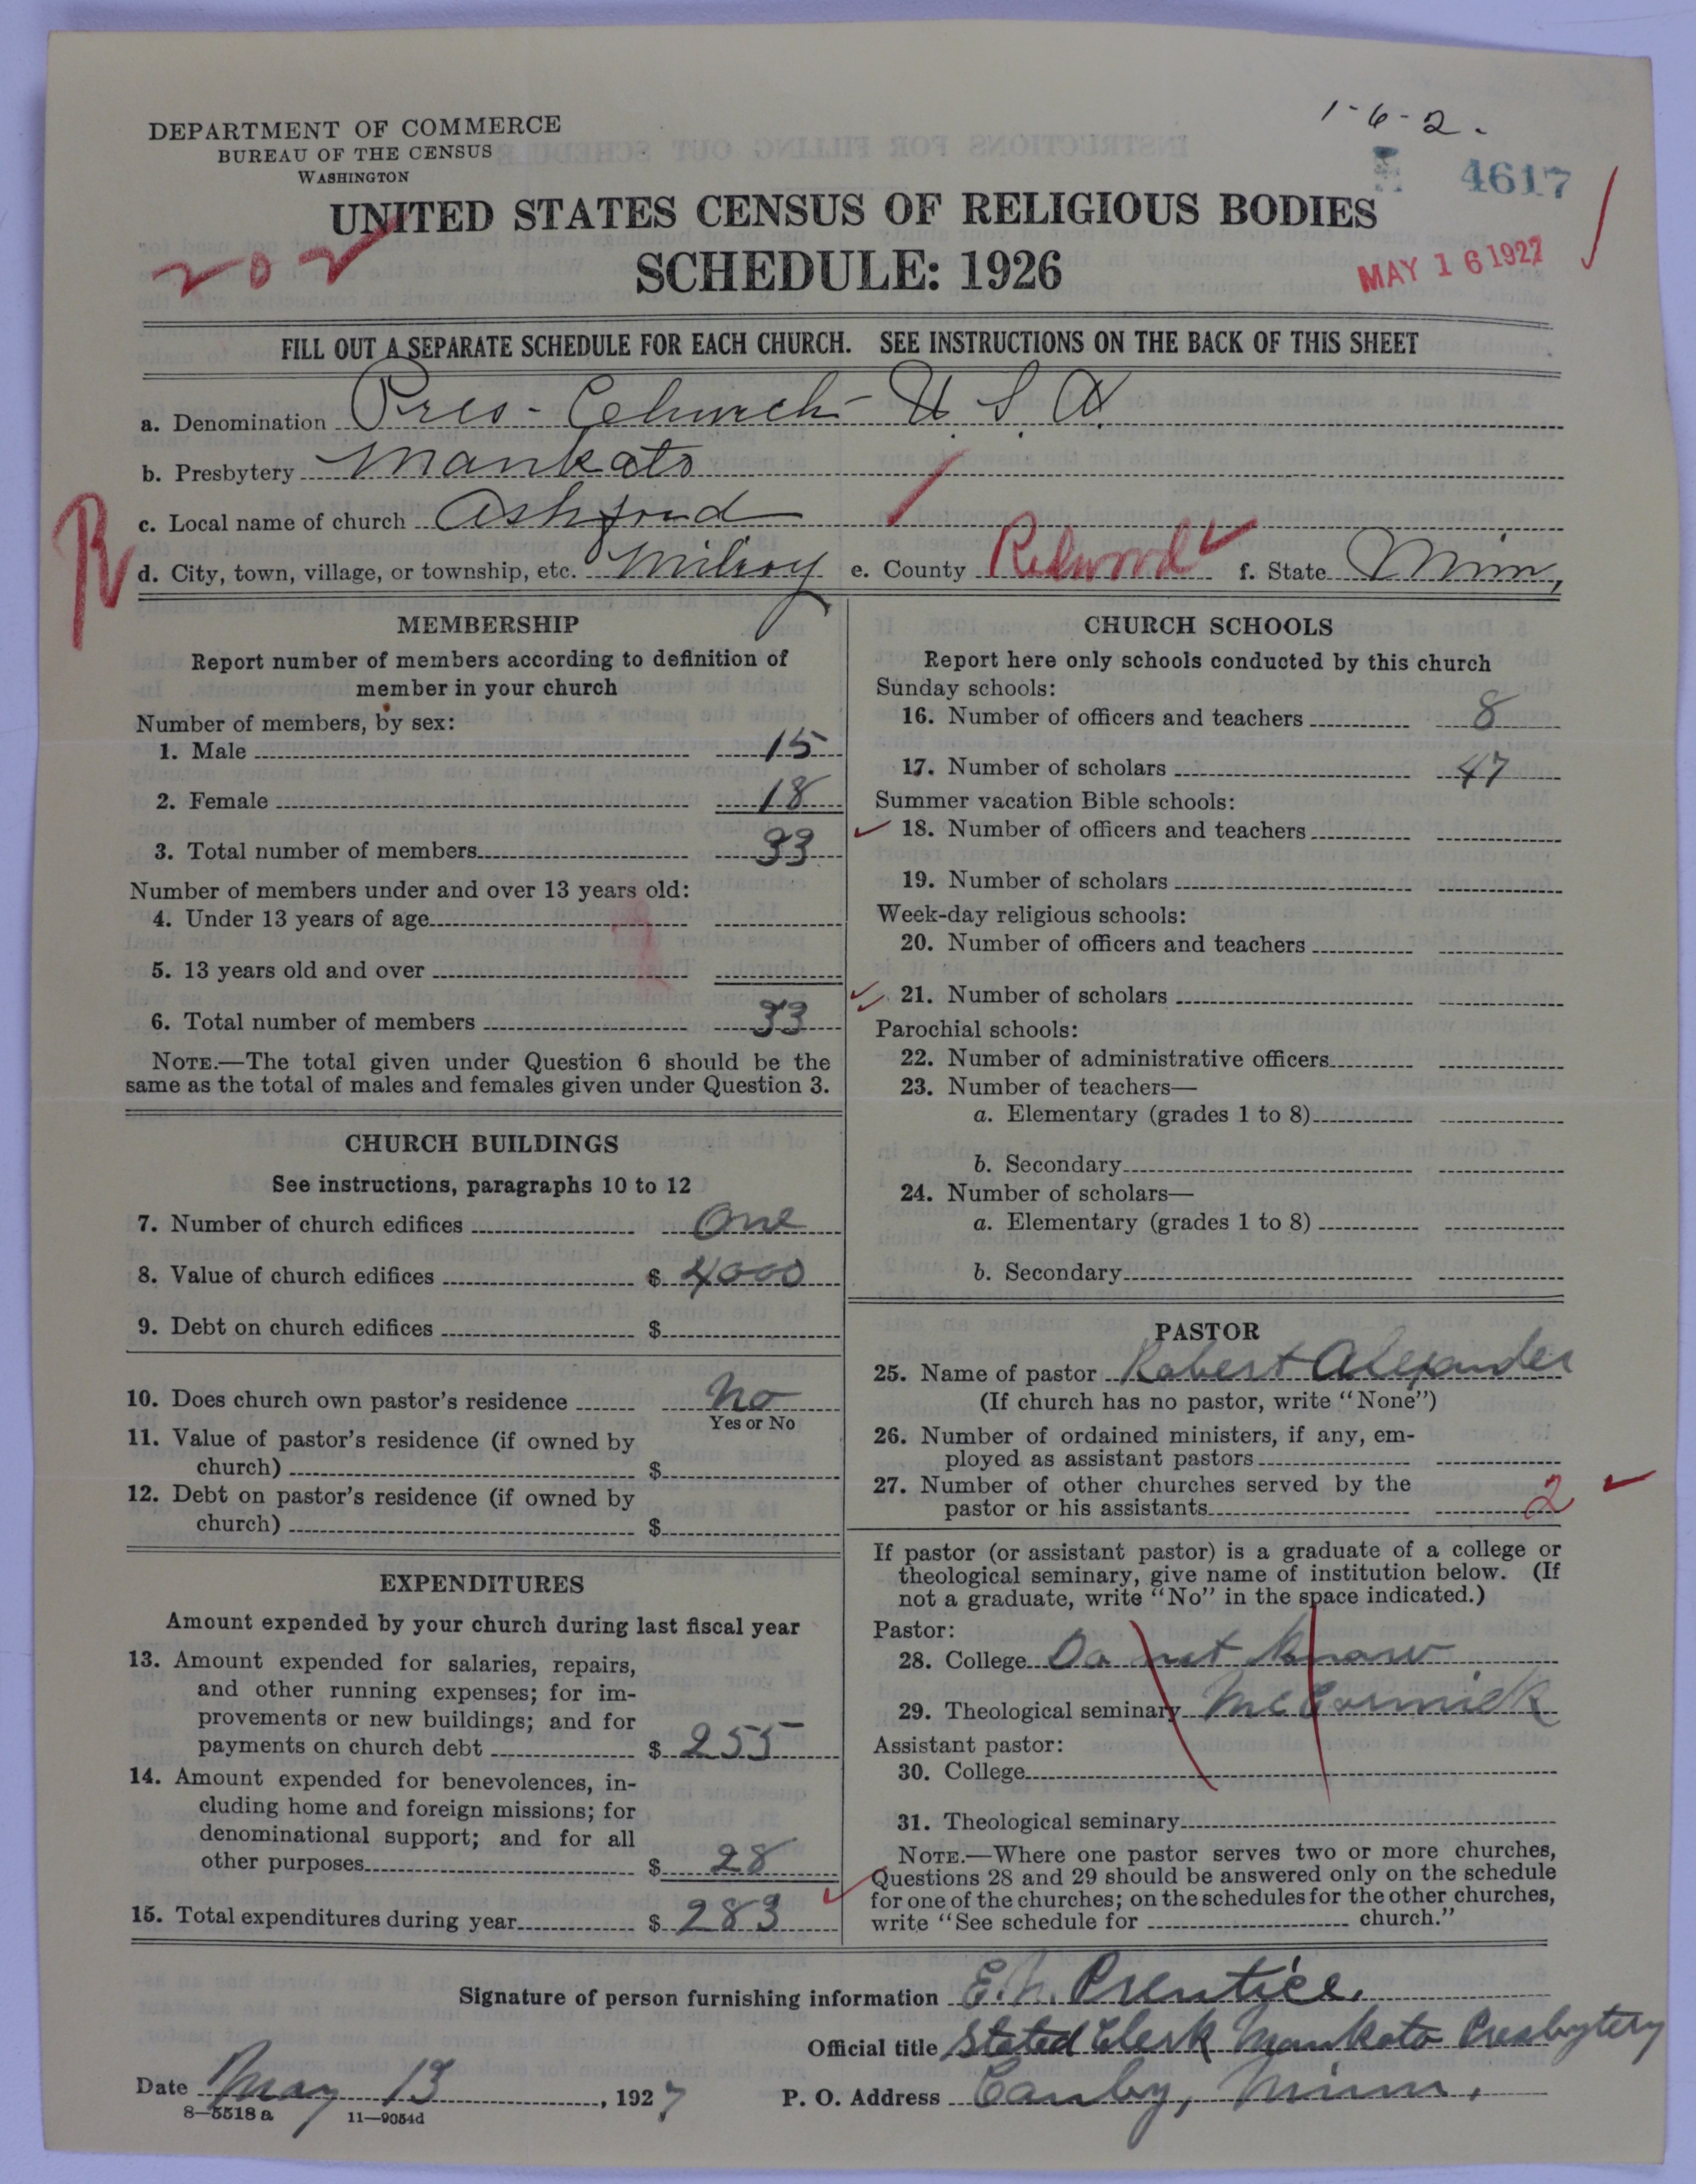 1-6-2.
DEPARTMENT OF COMMERCE
BUREAU OF THE CENSUS
WASHINGTON
4617
UNITED STATES CENSUS OF RELIGIOUS BODIES
202
SCHEDULE: 1926
MAY 16 1927
FILL OUT A SEPARATE SCHEDULE FOR EACH CHURCH. SEE INSTRUCTIONS ON THE BACK OF THIS SHEET
a. Denomination Pres- Church- U.S.A
b. Presbytery Mankato
R
c. Local name of church Ashford
d. City, town, village, or township, etc. Milroy e. County Redwood f. State Minn,
MEMBERSHIP
Report number of members according to definition of
member in your church
Number of members, by sex:
1. Male 15
2. Female 18
3. Total number of members 33
Number of members under and over 13 years old:
4. Under 13 years of age
5. 13 years old and over
6. Total number of members 33
NOTE.—The total given under Question 6 should be the
same as the total of males and females given under Question 3.
CHURCH BUILDINGS
See instructions, paragraphs 10 to 12
7. Number of church edifices One
8. Value of church edifices $ 4000
9. Debt on church edifices $
10. Does church own pastor's residence No
Yes or No
11. Value of pastor's residence (if owned by
church) $
12. Debt on pastor's residence (if owned by
church) $
EXPENDITURES
Amount expended by your church during last fiscal year
13. Amount expended for salaries, repairs,
and other running expenses; for im-
provements or new buildings; and for
payments on church debt $ 255
14. Amount expended for benevolences, in-
cluding home and foreign missions; for
denominational support; and for all
other purposes $ 28
15. Total expenditures during year $ 283
CHURCH SCHOOLS
Report here only schools conducted by this church
Sunday schools:
16. Number of officers and teachers 8
17. Number of scholars 47
Summer vacation Bible schools:
18. Number of officers and teachers
19. Number of scholars
Week-day religious schools:
20. Number of officers and teachers
21. Number of scholars
Parochial schools:
22. Number of administrative officers
23. Number of teachers—
a. Elementary (grades 1 to 8)
b. Secondary
24. Number of scholars—
a. Elementary (grades 1 to 8)
b. Secondary
PASTOR
25. Name of pastor Robert Alexander
(If church has no pastor, write "None")
26. Number of ordained ministers, if any, em-
ployed as assistant pastors
27. Number of other churches served by the
pastor or his assistants 2
If pastor (or assistant pastor) is a graduate of a college or
theological seminary, give name of institution below. (If
not a graduate, write "No" in the space indicated.)
Pastor:
28. College Do not know
29. Theological seminary McCormick
Assistant pastor:
30. College
31. Theological seminary
NOTE.—Where one pastor serves two or more churches,
Questions 28 and 29 should be answered only on the schedule
for one of the churches; on the schedules for the other churches,
write "See schedule for church."
Signature of person furnishing information E.N. Prentice.
Official title Stated Clerk Mankato Presbytery
Date May 13, 1927 P. O. Address Canby, Minn.
8—5518 a 11—9054d